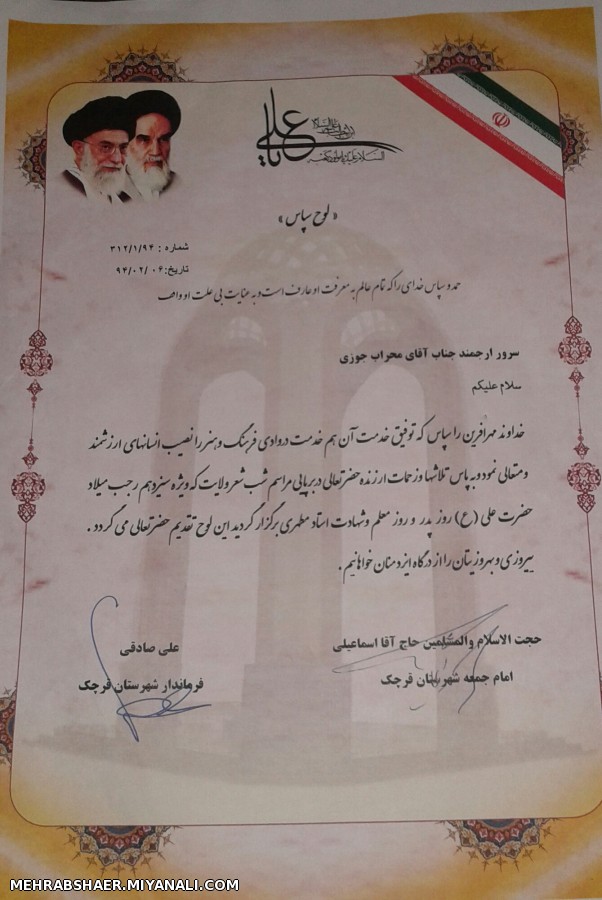 یا علی
« لوح سپاس »
شماره : ۳۱۲/۱/۹۴
تاریخ: ۹۴/۰۲/۰۴
حمد و سپاس خدای را که تمام عالم به معرفت او عارف است و به عنایت بی علت او واقف
سرور ارجمند جناب آقای محراب جوزی
سلام علیکم
خداوند مهرآفرین را سپاس که توفیق خدمت آن هم خدمت در وادی فرهنگ و هنر را نصیب انسانهای ارزشمند
و متعالی نمود و به پاس تلاشها و زحمات ارزنده حضرتعالی در برپایی مراسم شب شعر ولایت که ویژه سیزدهم رجب میلاد
حضرت علی (ع) روز پدر و روز معلم و شهادت استاد مطهری برگزار گردید این لوح تقدیم حضرتعالی می گردد .
پیروزی و بهروزیتان را از درگاه ایزد منان خواهانیم .
حجت الاسلام والمسلمین حاج آقا اسماعیلی
امام جمعه شهرستان قرچک
علی صادقی
فرماندار شهرستان قرچک
MEHRABSHAER.MIYANALI.COM